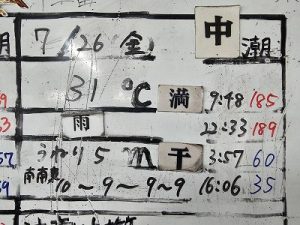 7/26 金 中 潮
31℃ 満 9:48 185
雨 22:33 189
うねり 5 m 干 3:57 60
南南東 10～9～9～9 16:06 35